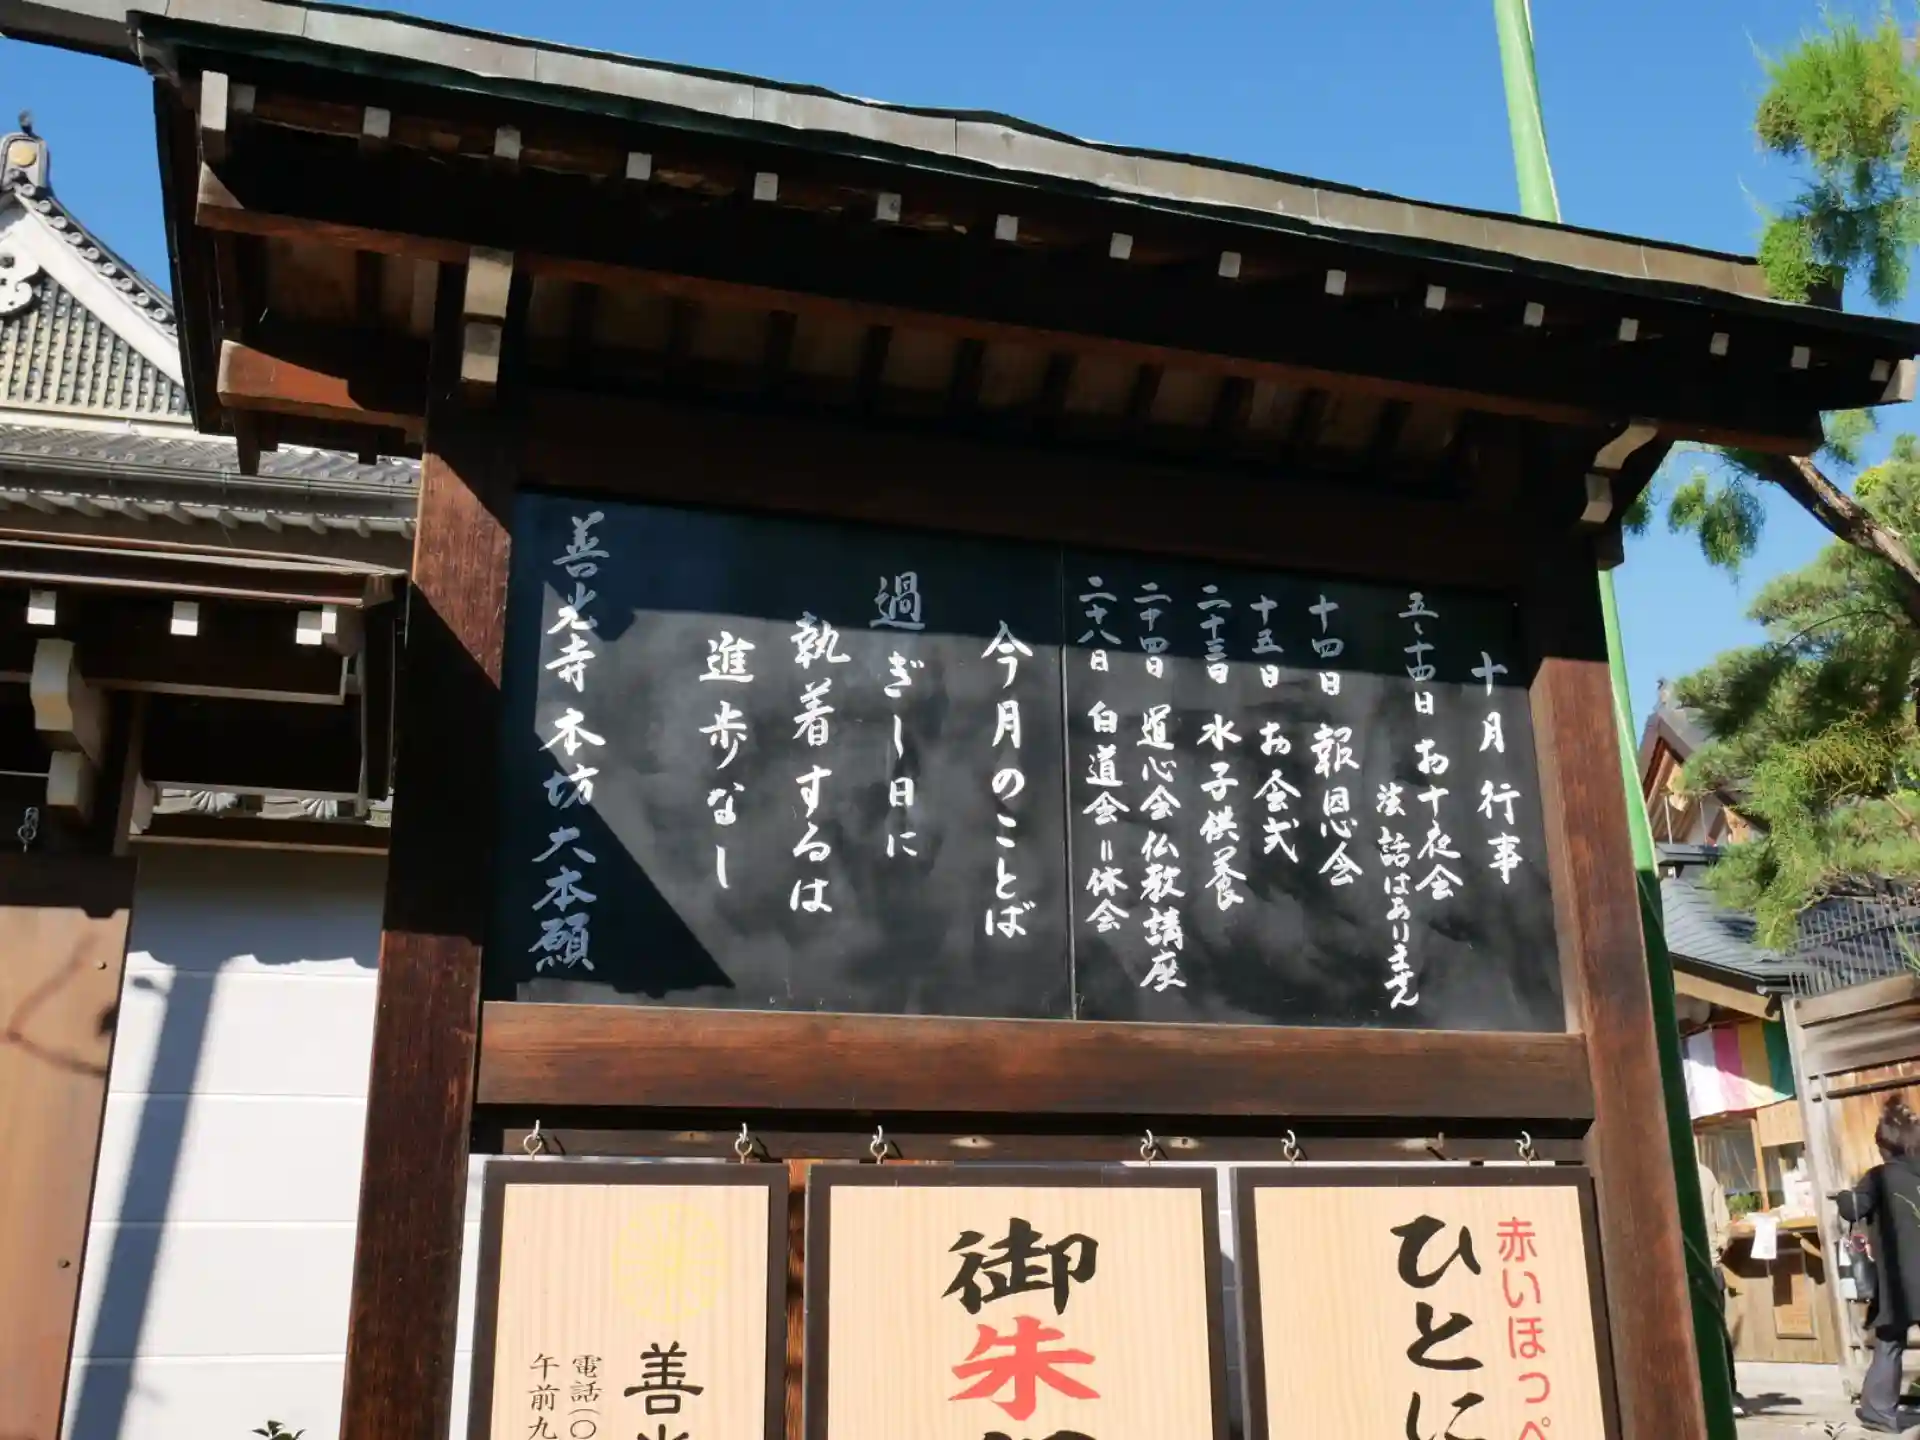 十月行事
五〜十四日 お十夜会
法話はありません
十四日 報恩会
十五日 お会式
二十三日 水子供養
二十四日 道心会仏教講座
二十八日 白道会=休会
今月のことば
過ぎし日に
執着するは
進歩なし
善光寺本坊大本願
赤いほっぺ
ひとに
御朱
善光
電話(〇
午前九